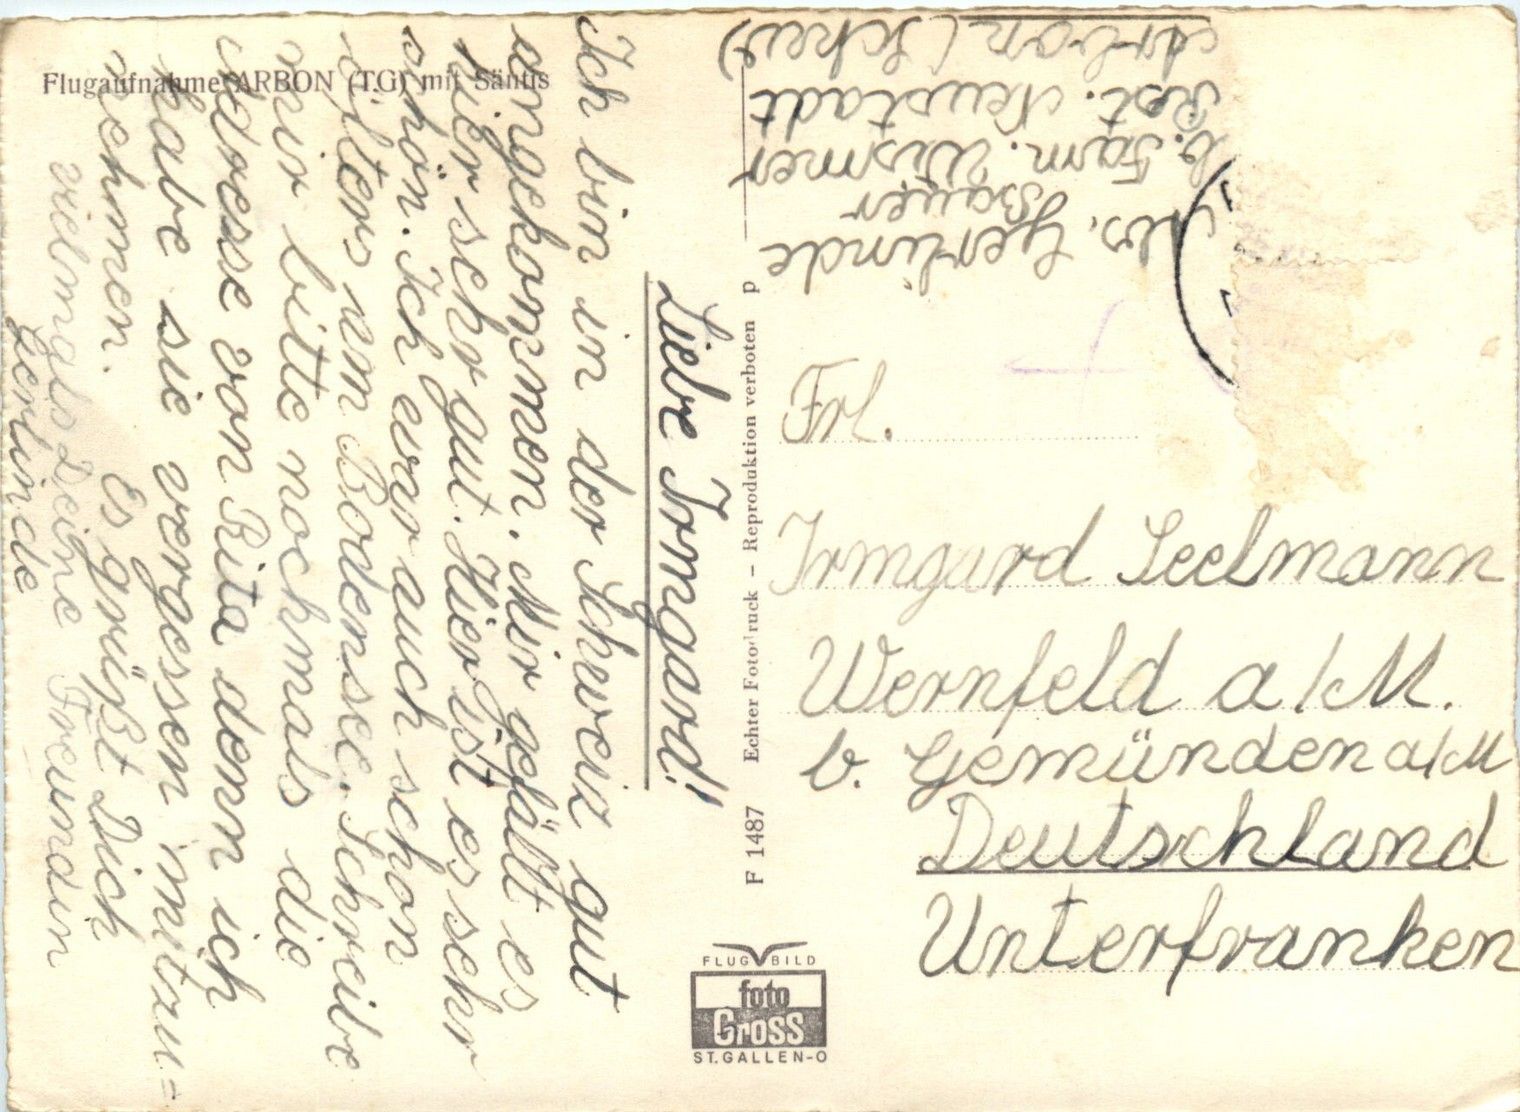 Flugaufnahme ARBON (TG) mit Säntis
Liebe Irmgard!
Ich bin in der Schweiz gut
angekommen. Mir gefällt es
hier sehr gut. Hier ist es sehr
schön. Ich war auch schon
öfters am Bodensee. Schreibe
mir bitte nochmals die
Adresse von Rita denn ich
habe sie vergessen mitzu=
nehmen.
Es grüßt Dich
vielmals Deine Freundin
Gerlinde
F 1487 Echter Fotodruck – Reproduktion verboten p
FLUG BILD
foto
Gross
ST. GALLEN-O
Abs. Gerlinde
Bauer
b. Fam. Wismer
Rest. Neustadt
Arbon (Schw)
Frl.
Irmgard Seelmann
Wernfeld a/M.
b. Gemünden a/M
Deutschland
Unterfranken